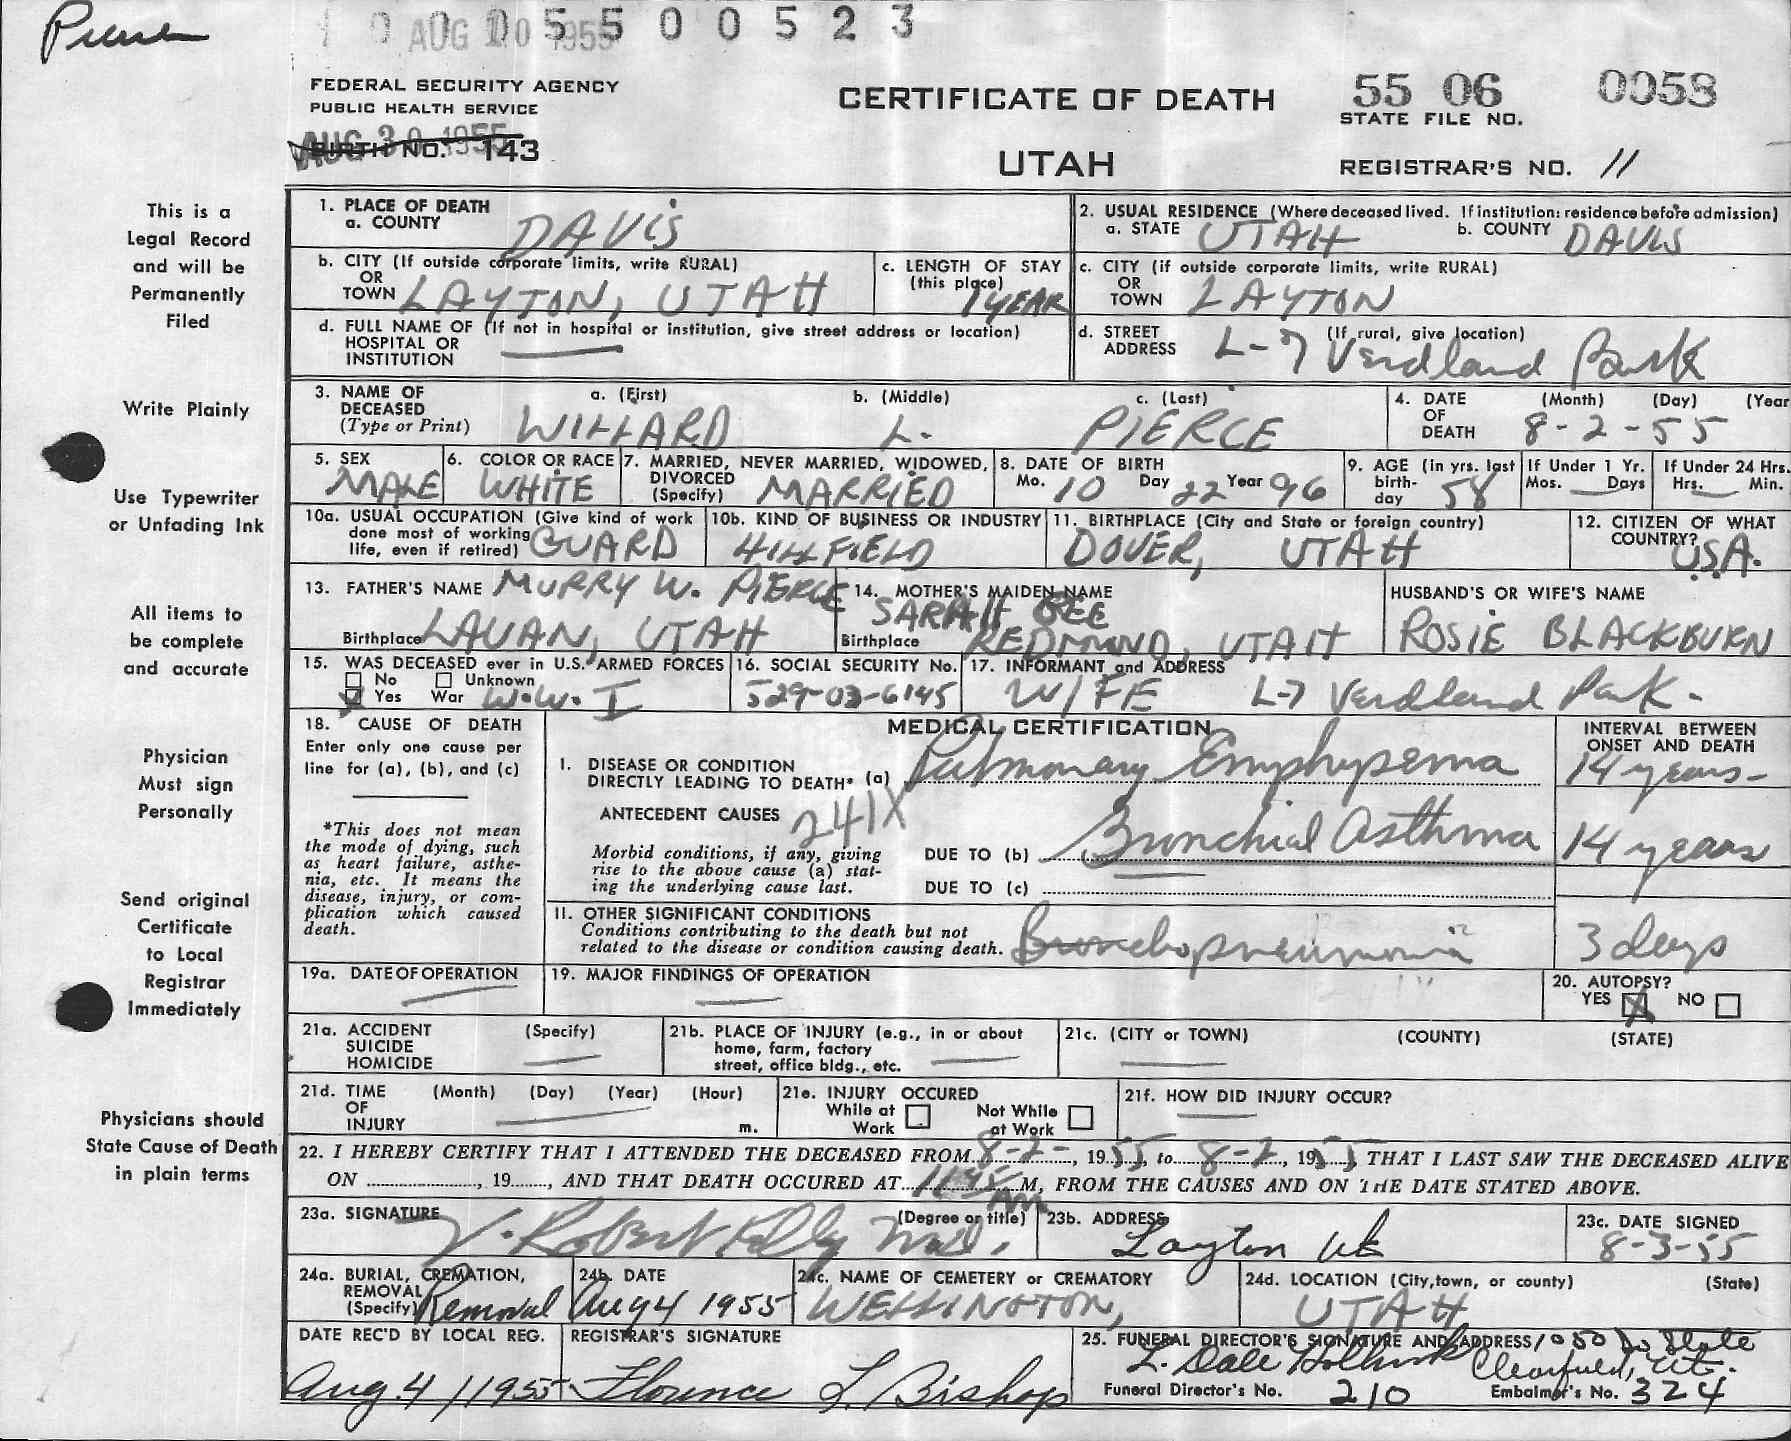 Pierce
AUG 10 1955
0 5 5 0 0 5 2 3
FEDERAL SECURITY AGENCY
PUBLIC HEALTH SERVICE
AUG 30 1955
BIRTH NO. 143
CERTIFICATE OF DEATH
UTAH
55 06 0058
STATE FILE NO.
REGISTRAR'S NO. 11
This is a
Legal Record
and will be
Permanently
Filed
Write Plainly
Use Typewriter
or Unfading Ink
All items to
be complete
and accurate
Physician
Must sign
Personally
Send original
Certificate
to Local
Registrar
Immediately
Physicians should
State Cause of Death
in plain terms
1. PLACE OF DEATH
a. COUNTY DAVIS
2. USUAL RESIDENCE (Where deceased lived. If institution: residence before admission)
a. STATE UTAH b. COUNTY DAVIS
b. CITY (If outside corporate limits, write RURAL)
OR
TOWN LAYTON, UTAH
c. LENGTH OF STAY
(this place)
1 YEAR
c. CITY (if outside corporate limits, write RURAL)
OR
TOWN LAYTON
d. FULL NAME OF (If not in hospital or institution, give street address or location)
HOSPITAL OR
INSTITUTION
d. STREET (If rural, give location)
ADDRESS L-7 Verdland Park
3. NAME OF
DECEASED
(Type or Print)
a. (First) b. (Middle) c. (Last)
WILLARD L. PIERCE
4. DATE (Month) (Day) (Year
OF
DEATH 8-2-55
5. SEX
MALE
6. COLOR OR RACE
WHITE
7. MARRIED, NEVER MARRIED, WIDOWED,
DIVORCED
(Specify) MARRIED
8. DATE OF BIRTH
Mo. 10 Day 22 Year 96
9. AGE (in yrs. last
birth-
day 58
If Under 1 Yr.
Mos. Days
If Under 24 Hrs.
Hrs. Min.
10a. USUAL OCCUPATION (Give kind of work
done most of working
life, even if retired) GUARD
10b. KIND OF BUSINESS OR INDUSTRY
HILLFIELD
11. BIRTHPLACE (City and State or foreign country)
DOVER, UTAH
12. CITIZEN OF WHAT
COUNTRY?
U.S.A.
13. FATHER'S NAME MURRY W. PIERCE
Birthplace LAVAN, UTAH
14. MOTHER'S MAIDEN NAME
SARAH GEE
Birthplace REDMOND, UTAH
HUSBAND'S OR WIFE'S NAME
ROSIE BLACKBURN
15. WAS DECEASED ever in U.S. ARMED FORCES
No Unknown
Yes War W.W. I
16. SOCIAL SECURITY No.
529-03-6145
17. INFORMANT and ADDRESS
WIFE L-7 Verdland Park.
18. CAUSE OF DEATH
Enter only one cause per
line for (a), (b), and (c)
*This does not mean
the mode of dying, such
as heart failure, asthe-
nia, etc. It means the
disease, injury, or com-
plication which caused
death.
MEDICAL CERTIFICATION
INTERVAL BETWEEN
ONSET AND DEATH
I. DISEASE OR CONDITION
DIRECTLY LEADING TO DEATH* (a) Pulmonary Emphysema 14 years
ANTECEDENT CAUSES 241X
Morbid conditions, if any, giving
rise to the above cause (a) stat-
ing the underlying cause last.
DUE TO (b) Bronchial Asthma 14 years
DUE TO (c)
II. OTHER SIGNIFICANT CONDITIONS
Conditions contributing to the death but not
related to the disease or condition causing death. Bronchopneumonia 3 days
19a. DATE OF OPERATION
19. MAJOR FINDINGS OF OPERATION
20. AUTOPSY?
YES X NO
21a. ACCIDENT (Specify)
SUICIDE
HOMICIDE
21b. PLACE OF INJURY (e.g., in or about
home, farm, factory
street, office bldg., etc.
21c. (CITY or TOWN) (COUNTY) (STATE)
21d. TIME (Month) (Day) (Year) (Hour)
OF
INJURY m.
21e. INJURY OCCURED
While at Work Not While at Work
21f. HOW DID INJURY OCCUR?
22. I HEREBY CERTIFY THAT I ATTENDED THE DECEASED FROM 8-2-, 1955, to 8-2, 1955, THAT I LAST SAW THE DECEASED ALIVE
ON , 19 , AND THAT DEATH OCCURED AT AM M, FROM THE CAUSES AND ON THE DATE STATED ABOVE.
23a. SIGNATURE (Degree or title)
V. Robert Kelly M.D.
23b. ADDRESS
Layton Ut
23c. DATE SIGNED
8-3-55
24a. BURIAL, CREMATION,
REMOVAL
(Specify) Removal
24b. DATE
Aug 4 1955
24c. NAME OF CEMETERY or CREMATORY
WELLINGTON,
24d. LOCATION (City, town, or county) (State)
UTAH
DATE REC'D BY LOCAL REG.
Aug. 4 / 1955
REGISTRAR'S SIGNATURE
Florence L. Bishop
25. FUNERAL DIRECTOR'S SIGNATURE AND ADDRESS 1050 So State
L. Dale Clearfield, Ut.
Funeral Director's No. 210 Embalmer's No. 324